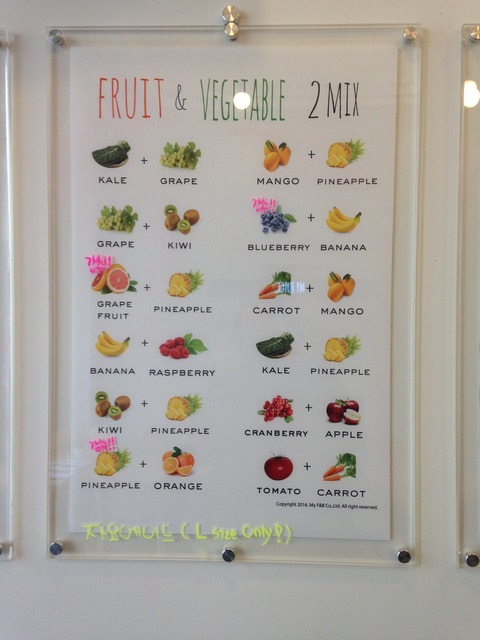 FRUIT & VEGETABLE 2 MIX
KALE + GRAPE
MANGO + PINEAPPLE
GRAPE + KIWI
BLUEBERRY + BANANA
GRAPE FRUIT + PINEAPPLE
CARROT + MANGO
BANANA + RASPBERRY
KALE + PINEAPPLE
KIWI + PINEAPPLE
CRANBERRY + APPLE
PINEAPPLE + ORANGE
TOMATO + CARROT
Copyright 2016. My F&B Co,Ltd. All right reserved.
자몽에이드 (L size only!)